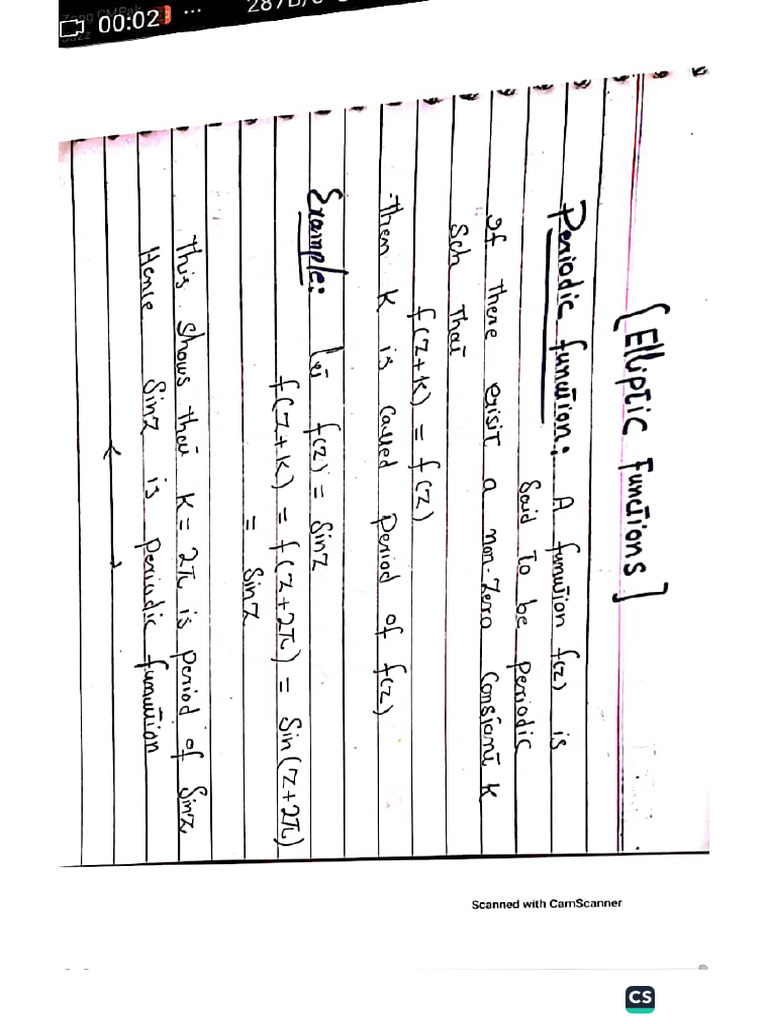 00:02 ...
[Elliptic Functions]
Periodic function: A function f(z) is
Said to be periodic
if there exisit a non-zero Constant K
Sch That
f(z+K) = f(z)
Then K is Called Period of f(z)
Example: Let f(z) = Sinz
f(z+K) = f(z+2π) = Sin(z+2π)
= Sinz
This shows that K = 2π is period of Sinz
Hence Sinz is periodic function
Scanned with CamScanner
CS